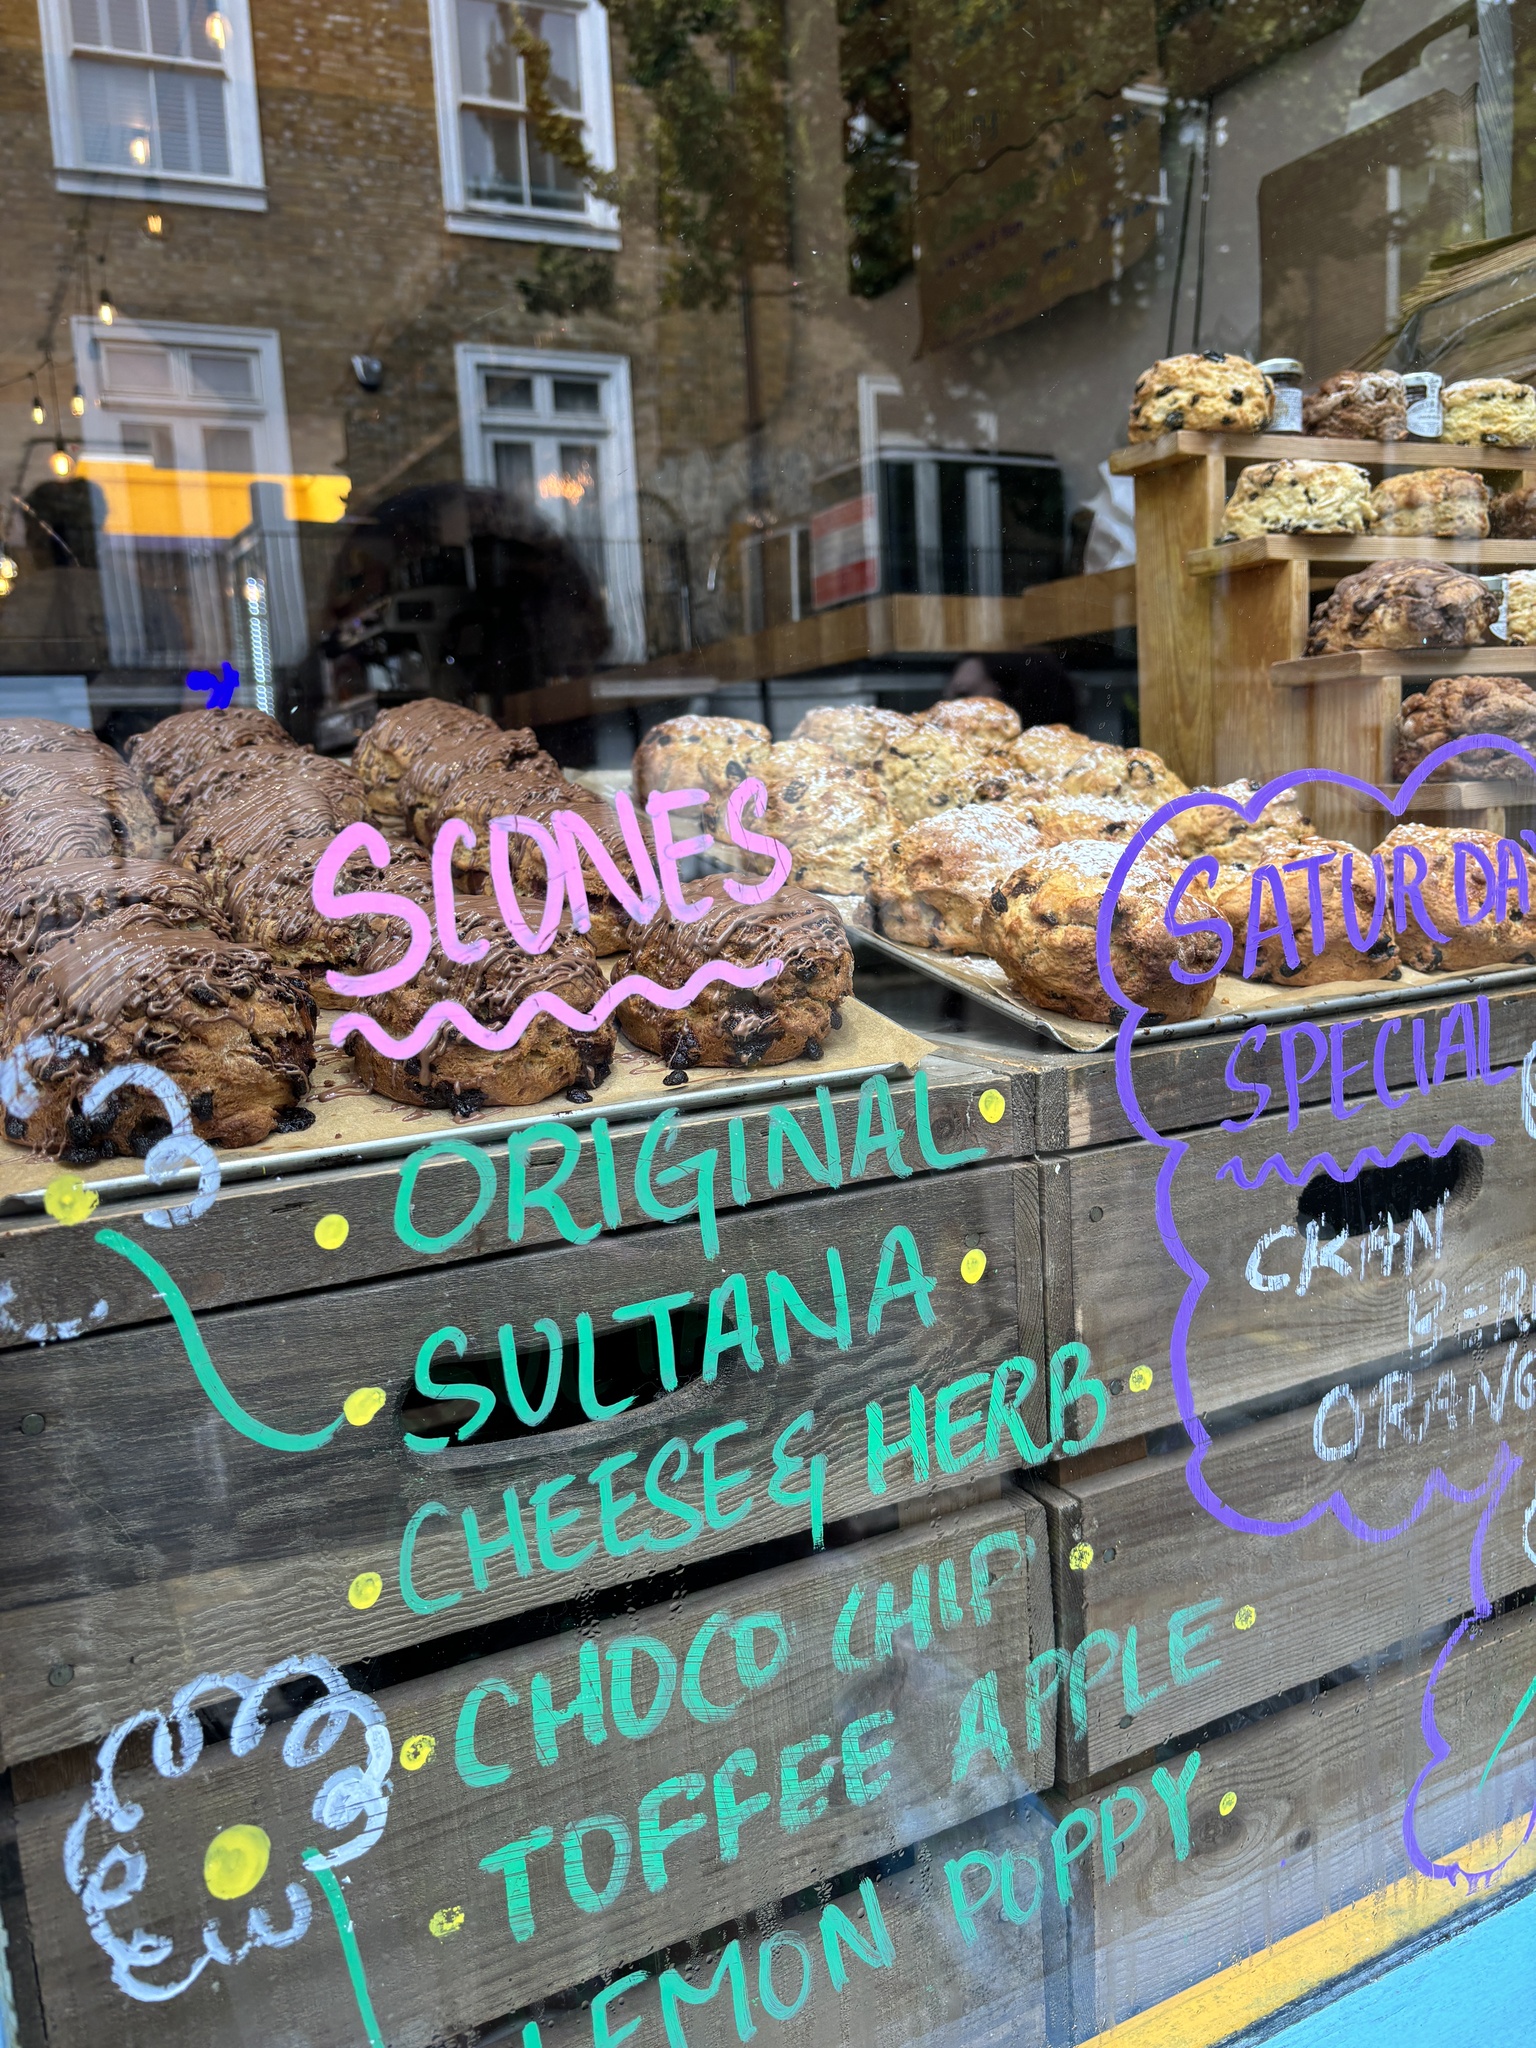 SCONES
ORIGINAL
SULTANA
CHEESE & HERB
CHOCO CHIP
TOFFEE APPLE
LEMON POPPY
SATURDAY
SPECIAL
CRAN
BER
ORANG